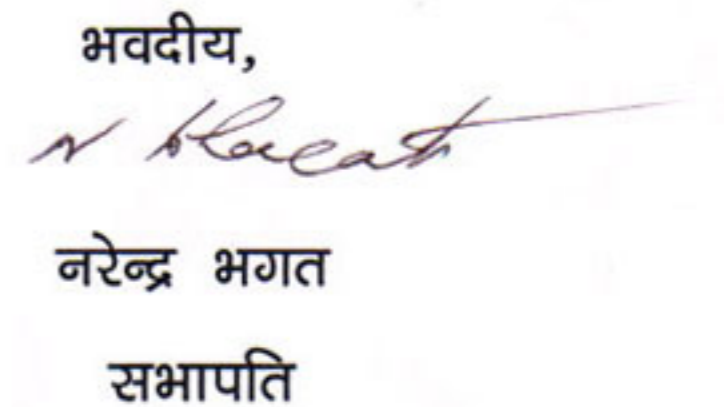 भवदीय,
N Bhagat
नरेन्द्र भगत
सभापति